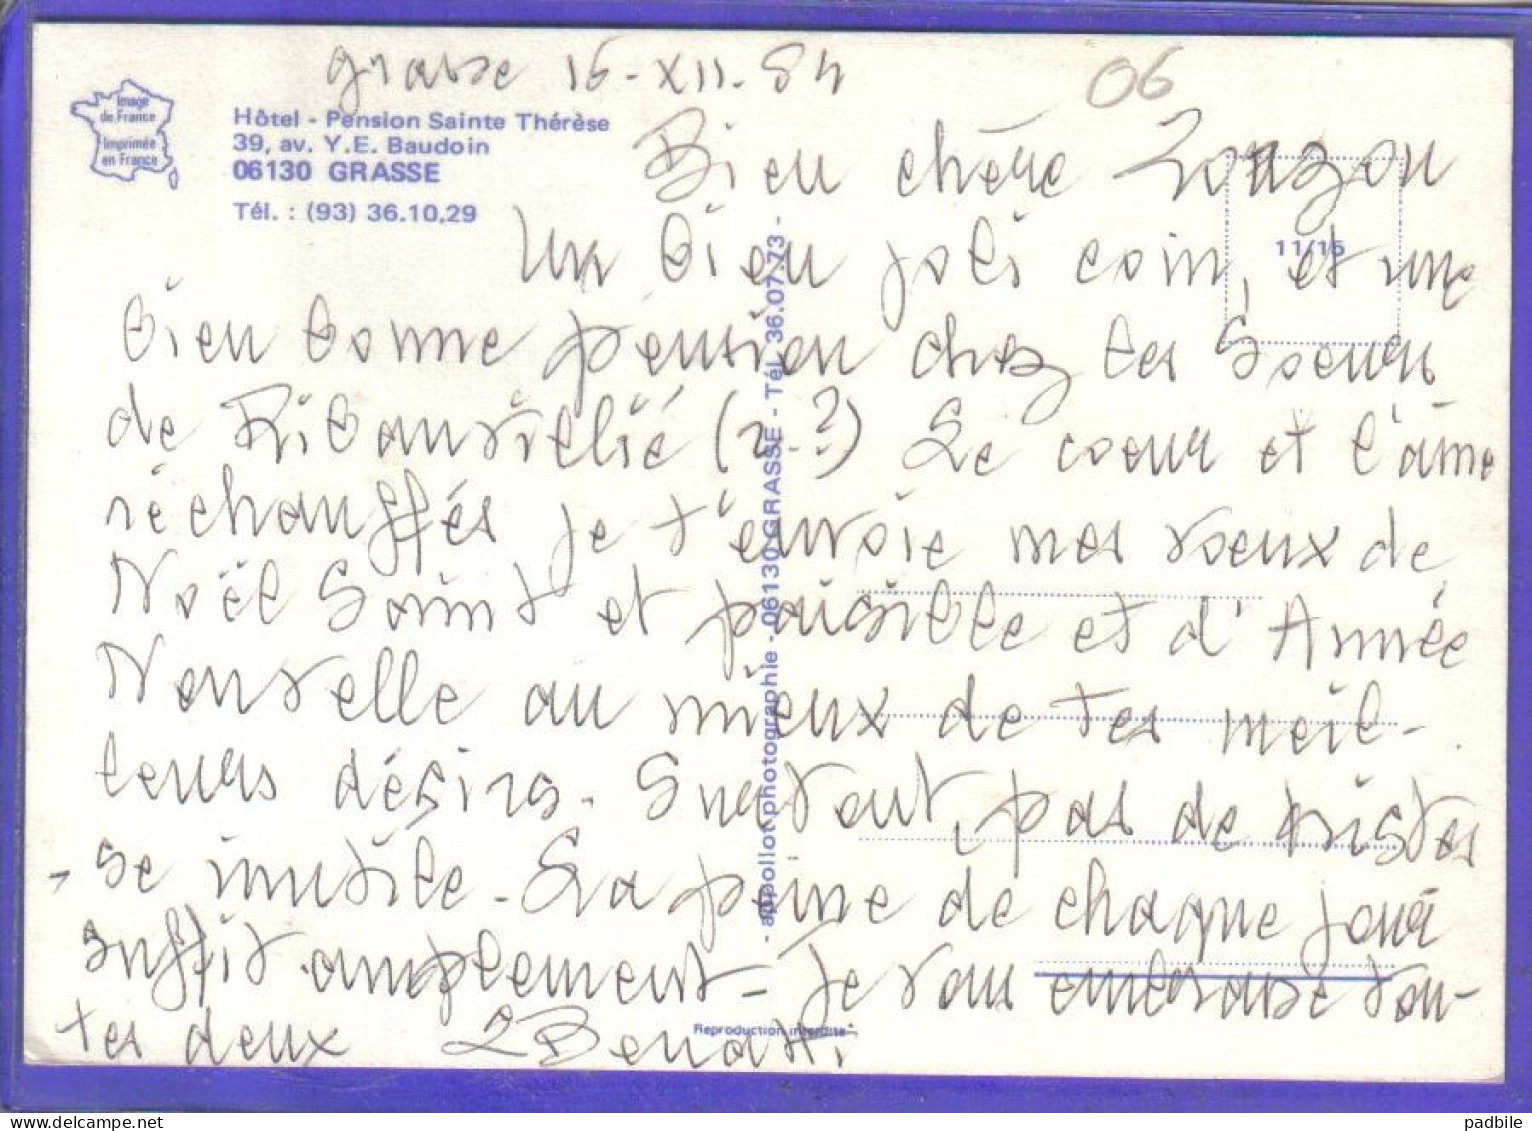 Grasse 15-XII-84
06
Image
de France
Imprimée
en France
Hôtel - Pension Sainte Thérèse
39, av. Y.E. Baudoin
06130 GRASSE
Tél. : (93) 36.10.29
11/15
Bien chère Zouzou
Un bien joli coin, et une
bien bonne pension chez les Soeurs
de Ribauvillié (r.?) Le coeur et l'âme
réchauffés je t'envoie mes voeux de
Noël Saint et paisible et d'Année
Nouvelle au mieux de tes meil-
leurs désirs. Surtout, pas de tristes
se inutile - La peine de chaque jour
suffit amplement - Je vous embrasse tou-
tes deux
- apollot photographie - 06130 GRASSE - Tél. 36.07.73 -
Reproduction interdite